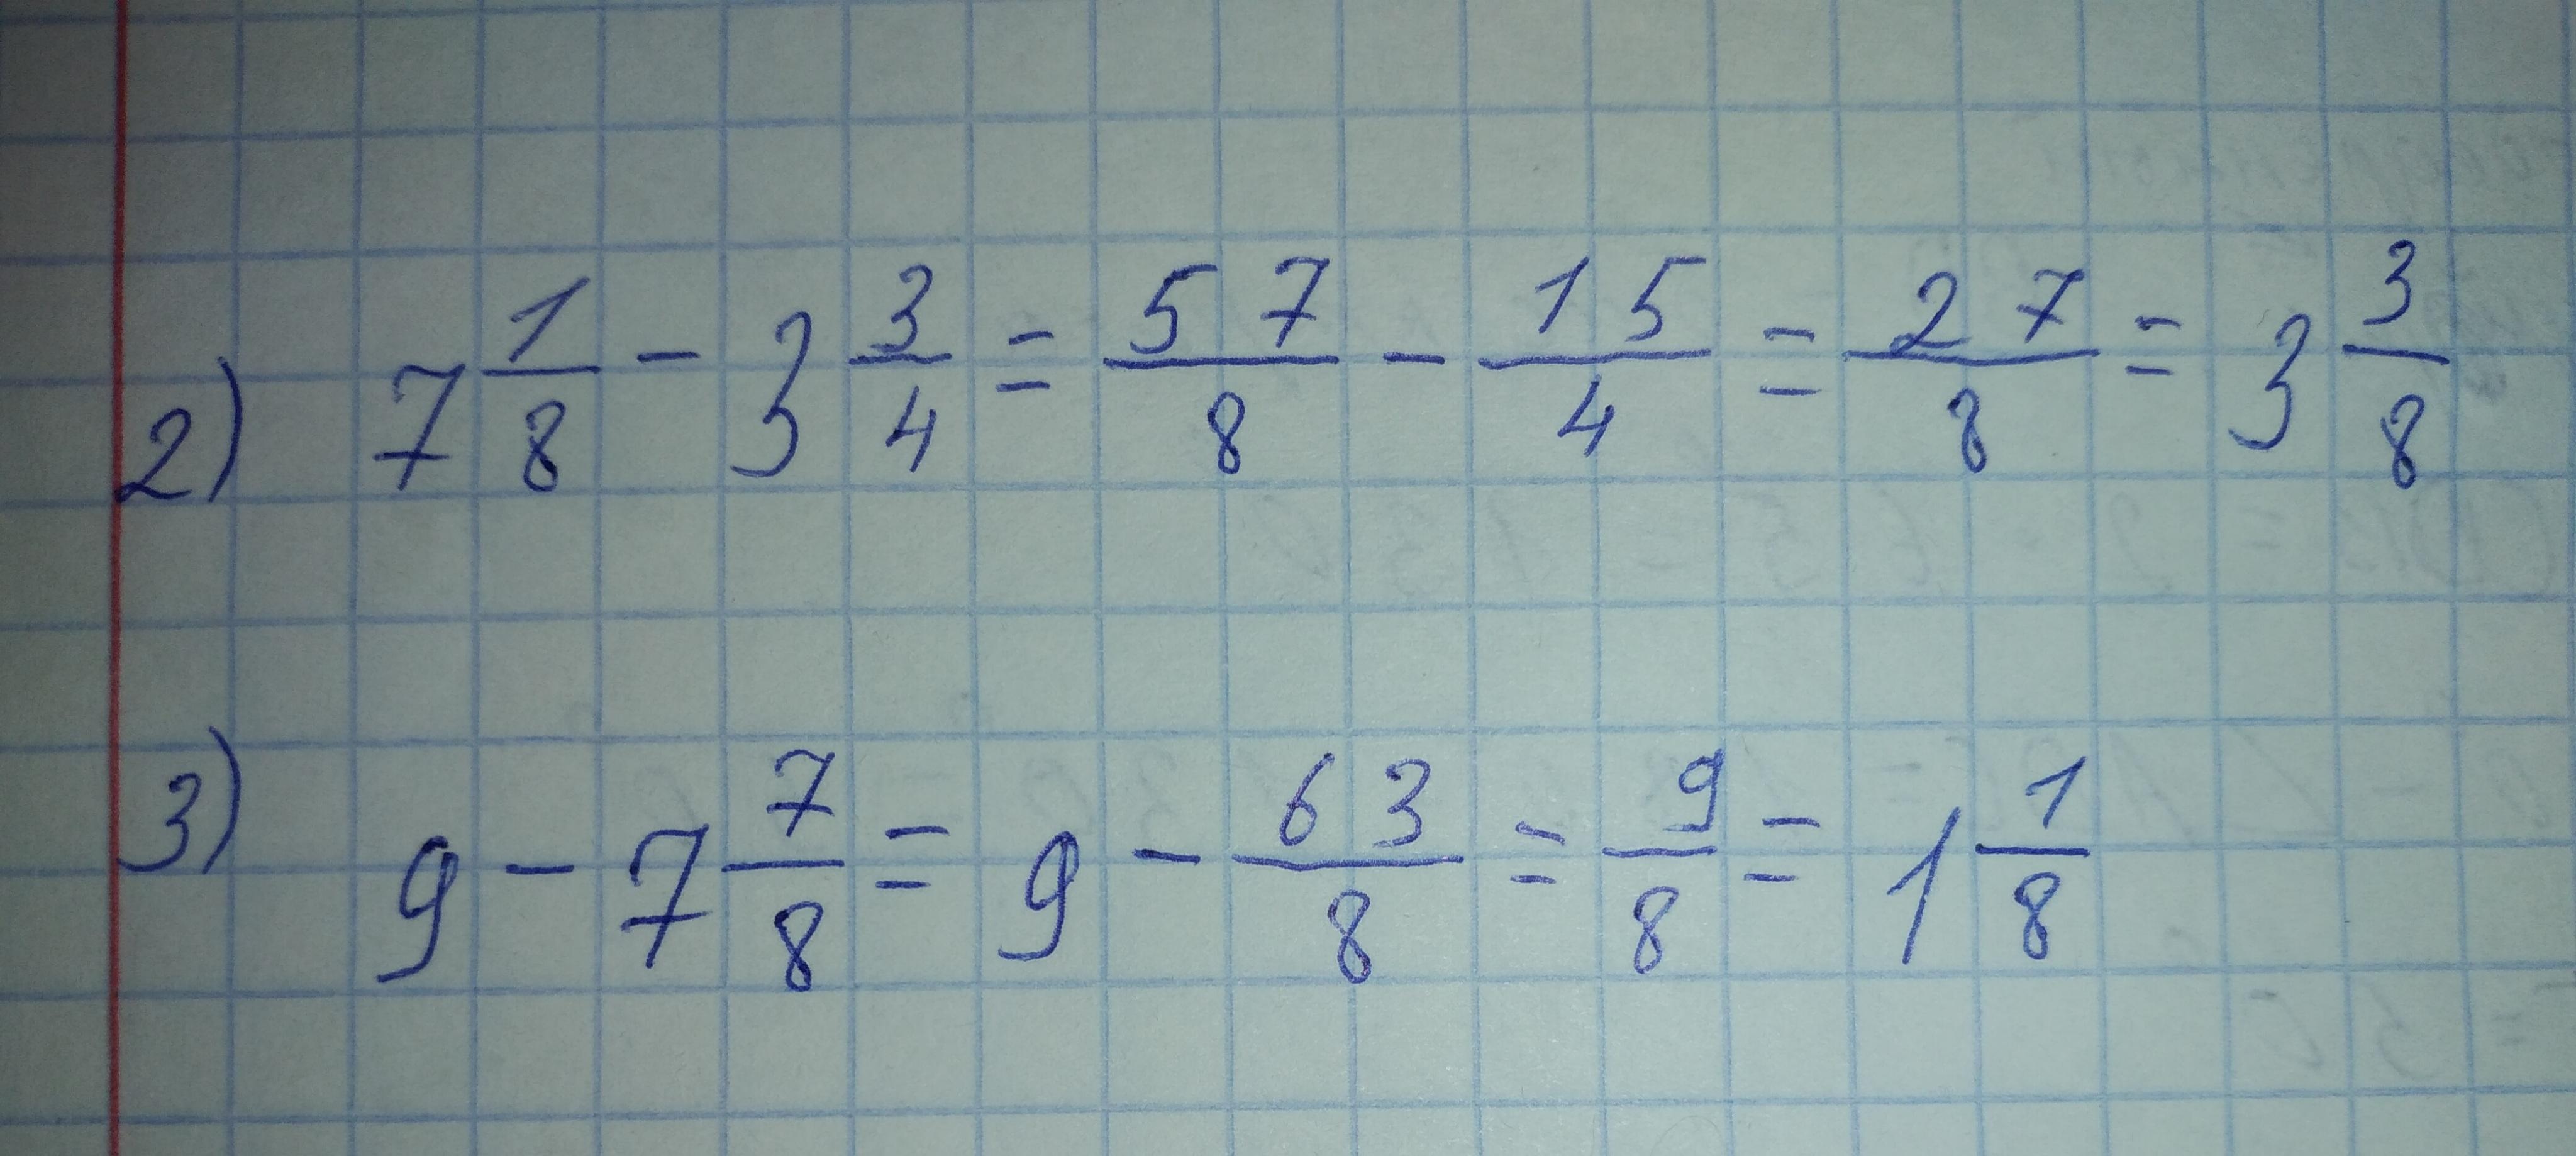 2) 7 1/8 - 3 3/4 = 57/8 - 15/4 = 27/8 = 3 3/8
3) 9 - 7 7/8 = 9 - 63/8 = 9/8 = 1 1/8